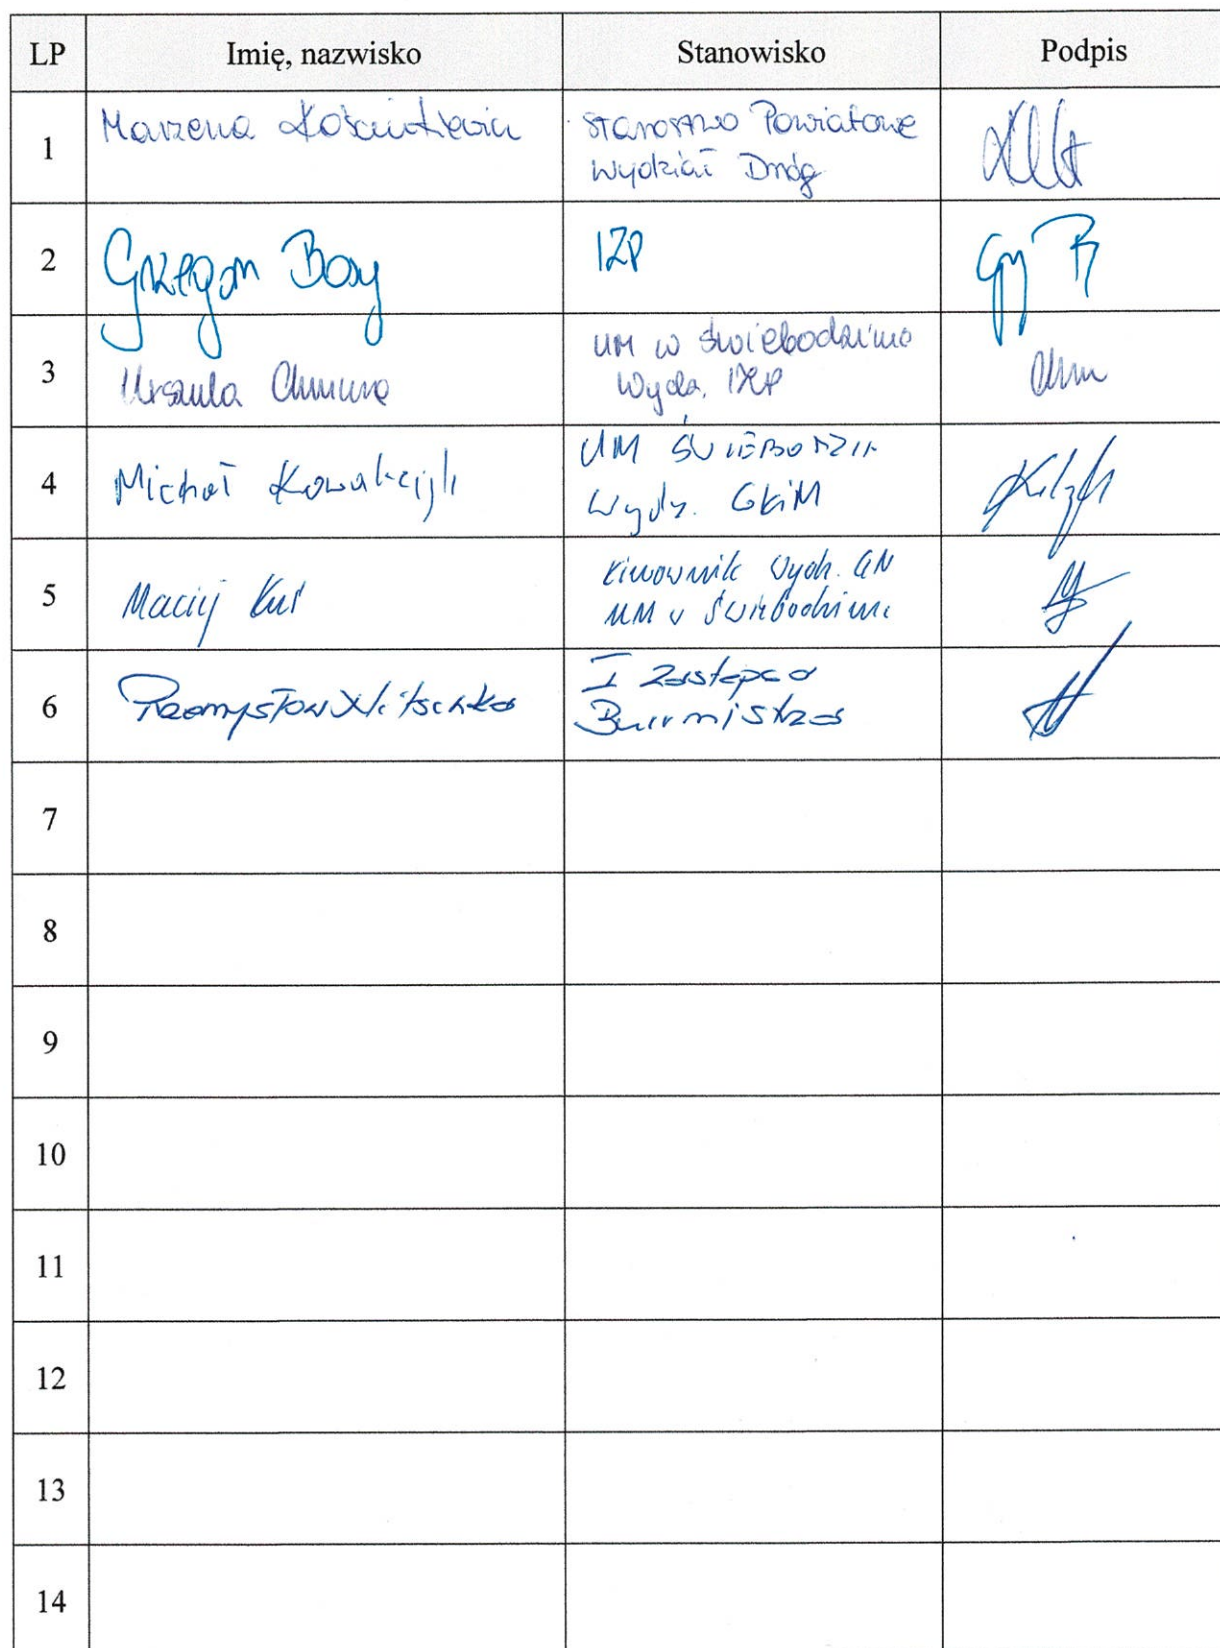 LP Imię, nazwisko Stanowisko Podpis
1 Marzena Starostwo Powiatowe
Wydział Dróg
2 Grzegorz Bosy IZP
3 Urszula Chmura UM w Świebodzinie
Wydz. IZP
4 Michał Kowalczyk UM ŚWIEBODZIN
Wydz. GKiM
5 Maciej Kuś Kierownik Wydz. GN
UM w Świebodzinie
6 Przemysław I Zastępca
Burmistrza
7
8
9
10
11
12
13
14